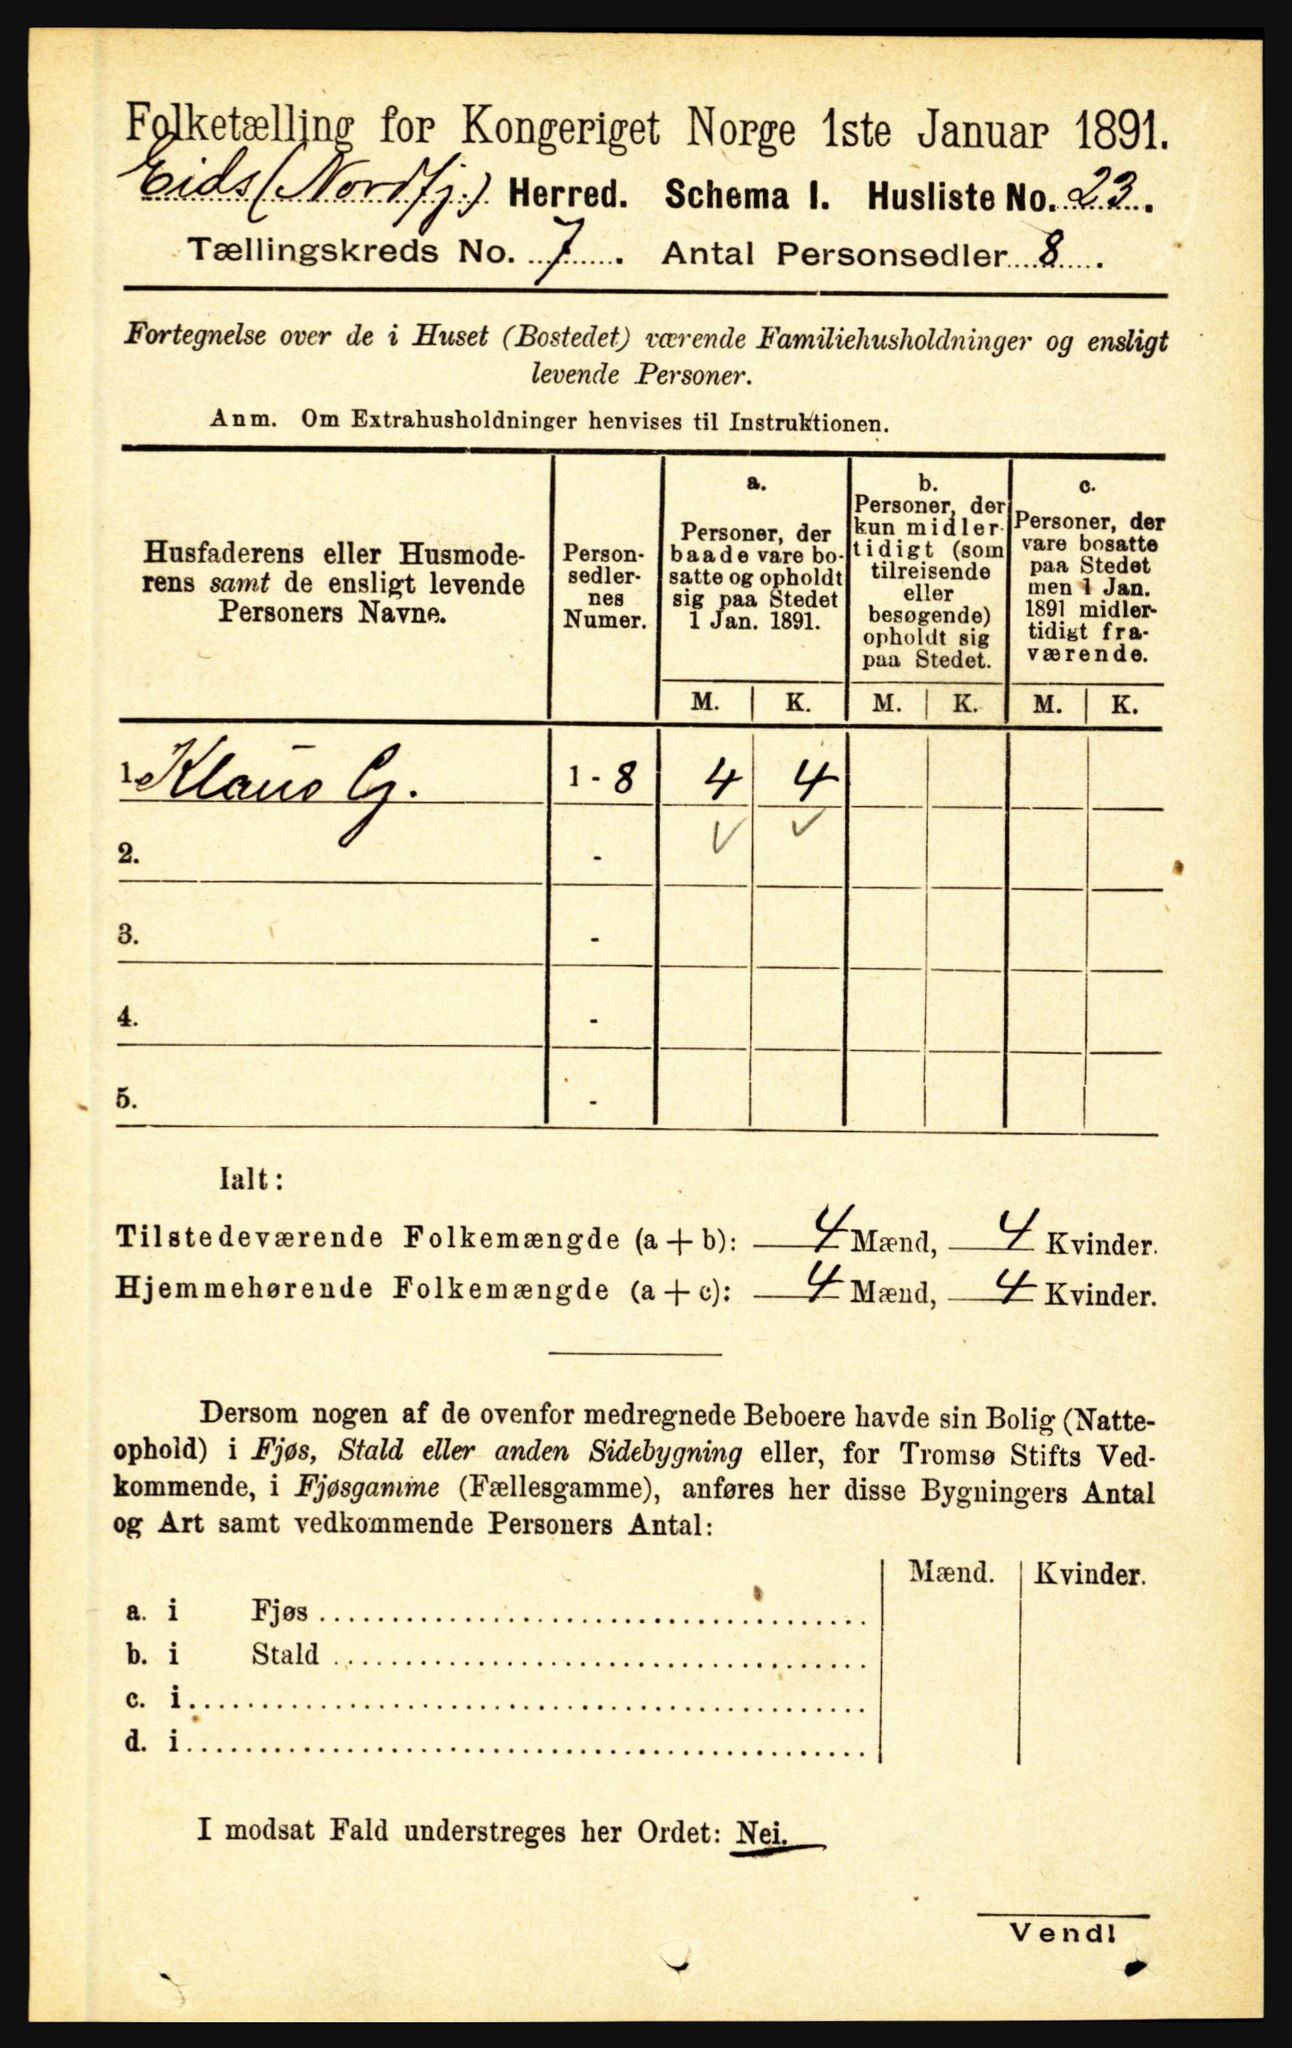 Folketælling for Kongeriget Norge 1ste Januar 1891.
Eids (Nordfj.) Herred. Schema I. Husliste No. 23.
Tællingskreds No. 7. Antal Personsedler 8.
Fortegnelse over de i Huset (Bostedet) værende Familiehusholdninger og ensligt
levende Personer.
Anm. Om Extrahusholdninger henvises til Instruktionen.
Husfaderens eller Husmode-
rens samt de ensligt levende
Personers Navne.
Person-
sedler-
nes
Numer.
a.
Personer, der
baade vare bo-
satte og opholdt
sig paa Stedet
1 Jan. 1891.
b.
Personer, der
kun midler-
tidigt (som
tilreisende
eller
besøgende)
opholdt sig
paa Stedet.
c.
Personer, der
vare bosatte
paa Stedet
men 1 Jan.
1891 midler-
tidigt fra-
værende.
M. K. M. K. M. K.
1. Klaus G. 1 - 8 4 4
2. -
3. -
4. -
5. -
Ialt:
Tilstedeværende Folkemængde (a + b): 4 Mænd, 4 Kvinder.
Hjemmehørende Folkemængde (a + c): 4 Mænd, 4 Kvinder.
Dersom nogen af de ovenfor medregnede Beboere havde sin Bolig (Natte-
ophold) i Fjøs, Stald eller anden Sidebygning eller, for Tromsø Stifts Ved-
kommende, i Fjøsgamme (Fællesgamme), anføres her disse Bygningers Antal
og Art samt vedkommende Personers Antal:
Mænd. Kvinder.
a. i Fjøs
b. i Stald
c. i
d. i
I modsat Fald understreges her Ordet: Nei.
Vend!